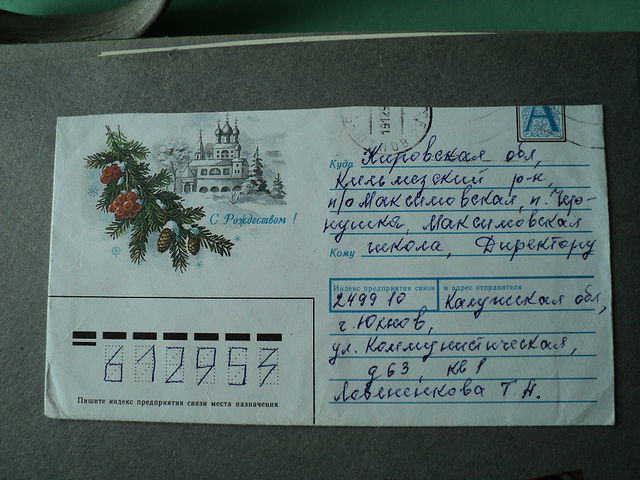 А
С Рождеством!
Куда Кировская обл,
Кильмезский р-н,
п/о Максимовская, п. Чер-
нушка, Максимовская
Кому школа, Директору
Индекс предприятия связи и адрес отправителя
249910 Калужская обл,
г. Юхнов,
ул. Коммунистическая,
д 63, кв 1
Т. А.
612957
Пишите индекс предприятия связи места назначения